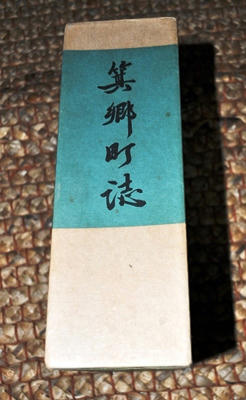 箕郷町誌